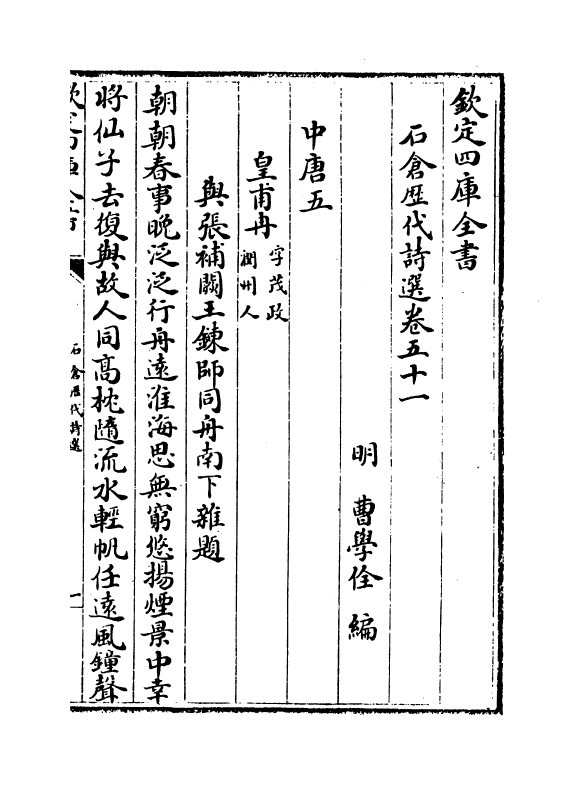 欽定四庫全書
石倉歷代詩選卷五十一
明 曹學佺 編
中唐五
皇甫冉字茂政
潤州人
與張補闕王鍊師同舟南下雜題
朝朝春事晚泛泛行舟遠淮海思無窮悠揚煙景中幸
將仙子去復與故人同高枕隨流水輕帆任遠風鐘聲
欽定四庫全書
石倉歷代詩選
一